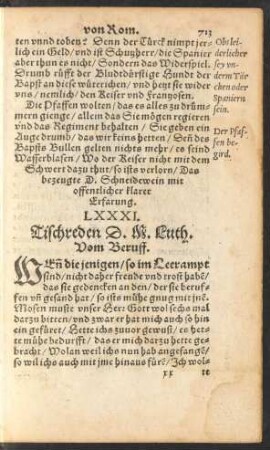 von Rom. 713
ten vnnd toben? Denn der Türck nimpt jer-
lich ein Geld / vnd ist Schutzherr / die Spanier
aber thun es nicht / Sondern das Widerspiel.
Drumb rüfft der Blutdürstige Hundt der
Bapst an diese wüterichen / vnd hetzt sie wider
vns / nemlich / den Keiser vnd Frantzosen.
Ob leid-
derlicher
sey vn-
dern Tür-
cken oder
Spaniern
sein.
Die Pfaffen wolten / das es alles zu drüm-
mern gienge / allein das Sie mögen regieren
vnd das Regiment behalten / Sie geben ein
Auge drumb / das wir keins hetten / Deñ des
Bapsts Bullen gelten nichts mehr / es seind
Wasserblasen / Wo der Keiser nicht mit dem
Schwert dazu thut / so ists verlorn / Das
bezeugte D. Schneidewein mit
offentlicher klarer
Erfarung.
Der Pfaf-
fen be-
gird.
LXXXI.
Tischreden D. M. Luth.
Vom Beruff.
WEñ die jenigen / so im Leerampt
sind / nicht daher freude vnd trost habē /
das sie gedencken an den / der sie beruf-
fen vñ gesand hat / so ists mühe gnug mit jnē.
Mosen muste vnser Herr Gott wol sechs mal
darzu bitten / vnd zwar er hat mich auch so hin
ein gefüret / Hette ichs zuuor gewust / es het-
te mühe bedurfft / das er mich darzu hette ge-
bracht / Wolan weil ichs nun hab angefangē /
so wil ichs auch mit jme hinaus fürē / Ich wol-
xx te